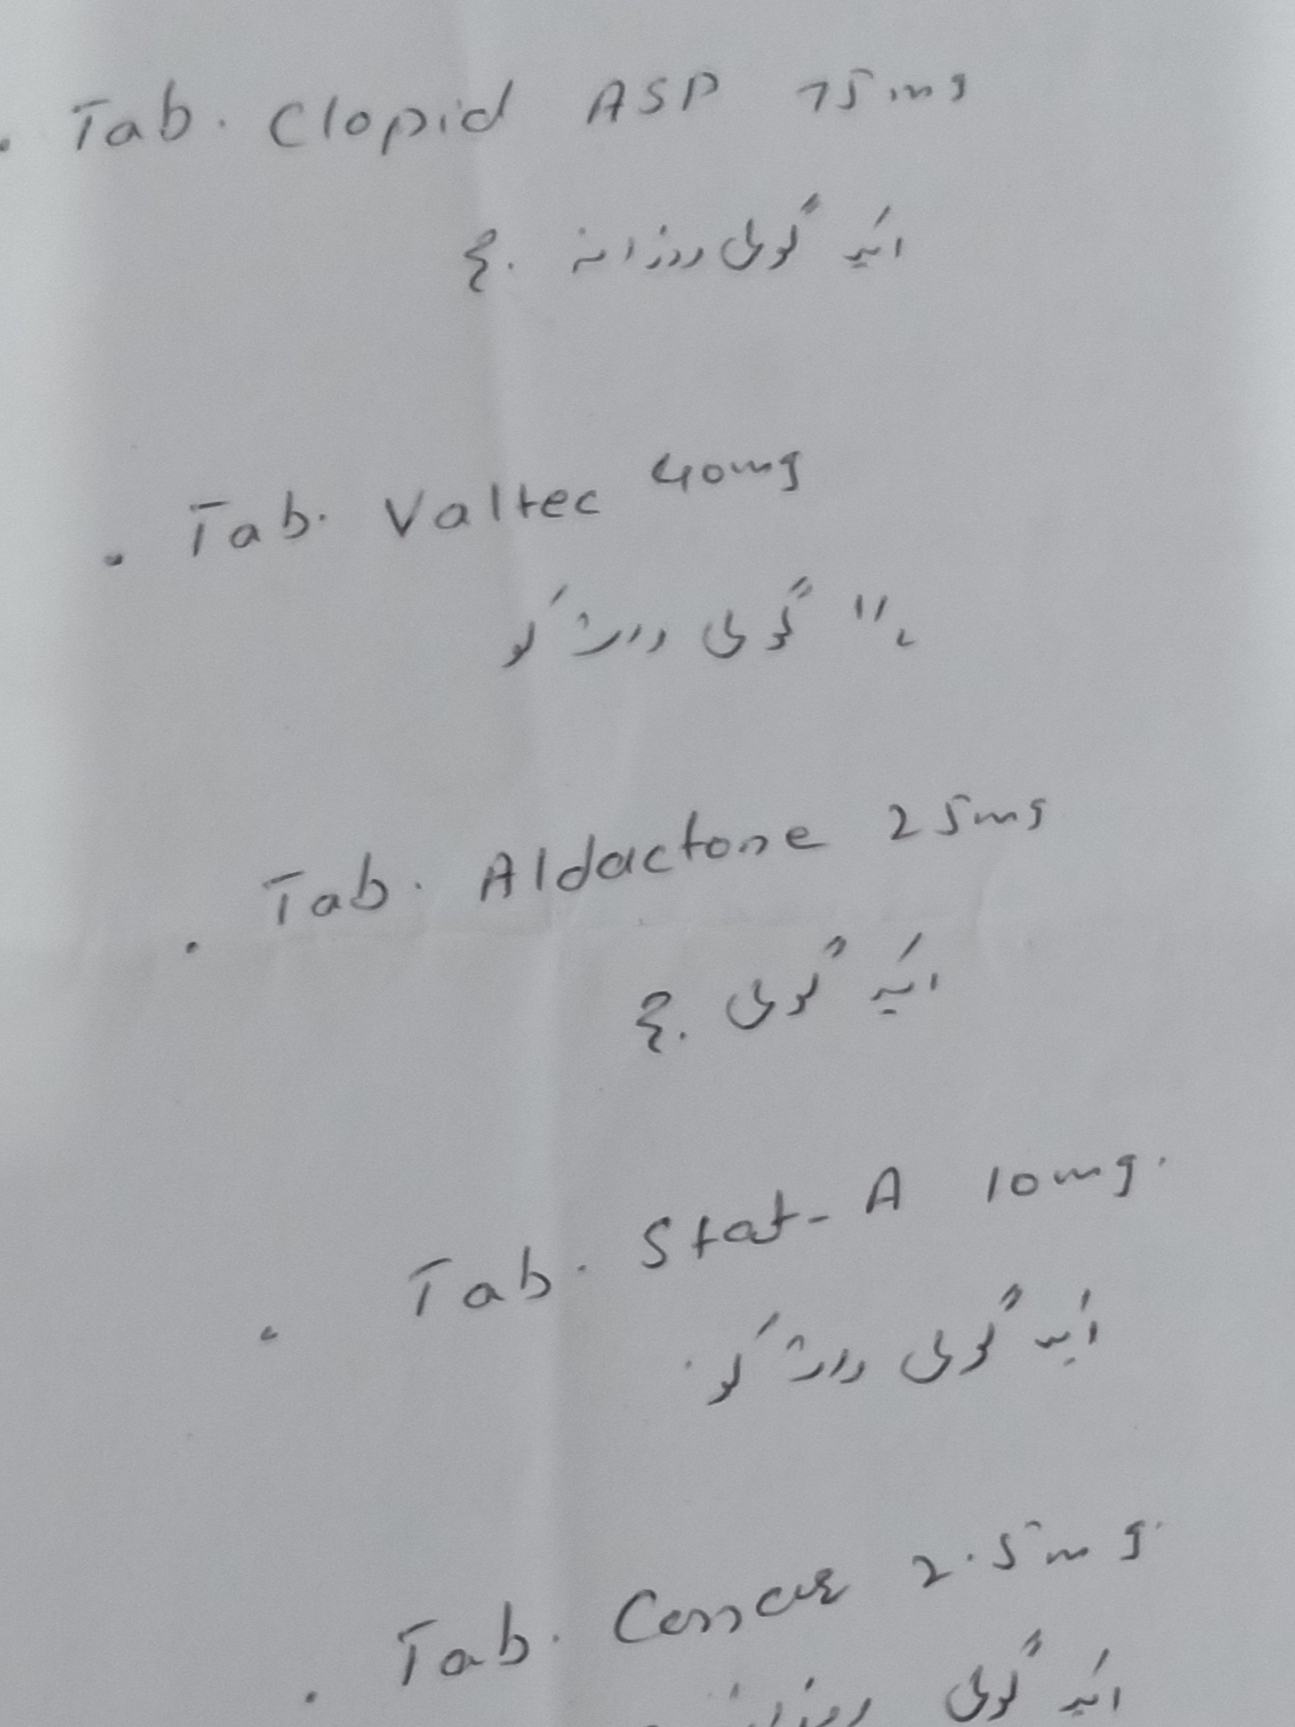 Tab. Clopid ASP 75mg
ایک گولی روزانہ
Tab. Valtec 40mg
گولی رات کو
Tab. Aldactone 25mg
ایک گولی
Tab. Stat-A 10mg.
ایک گولی رات کو
Tab. 2.5mg
ایک گولی روزانہ